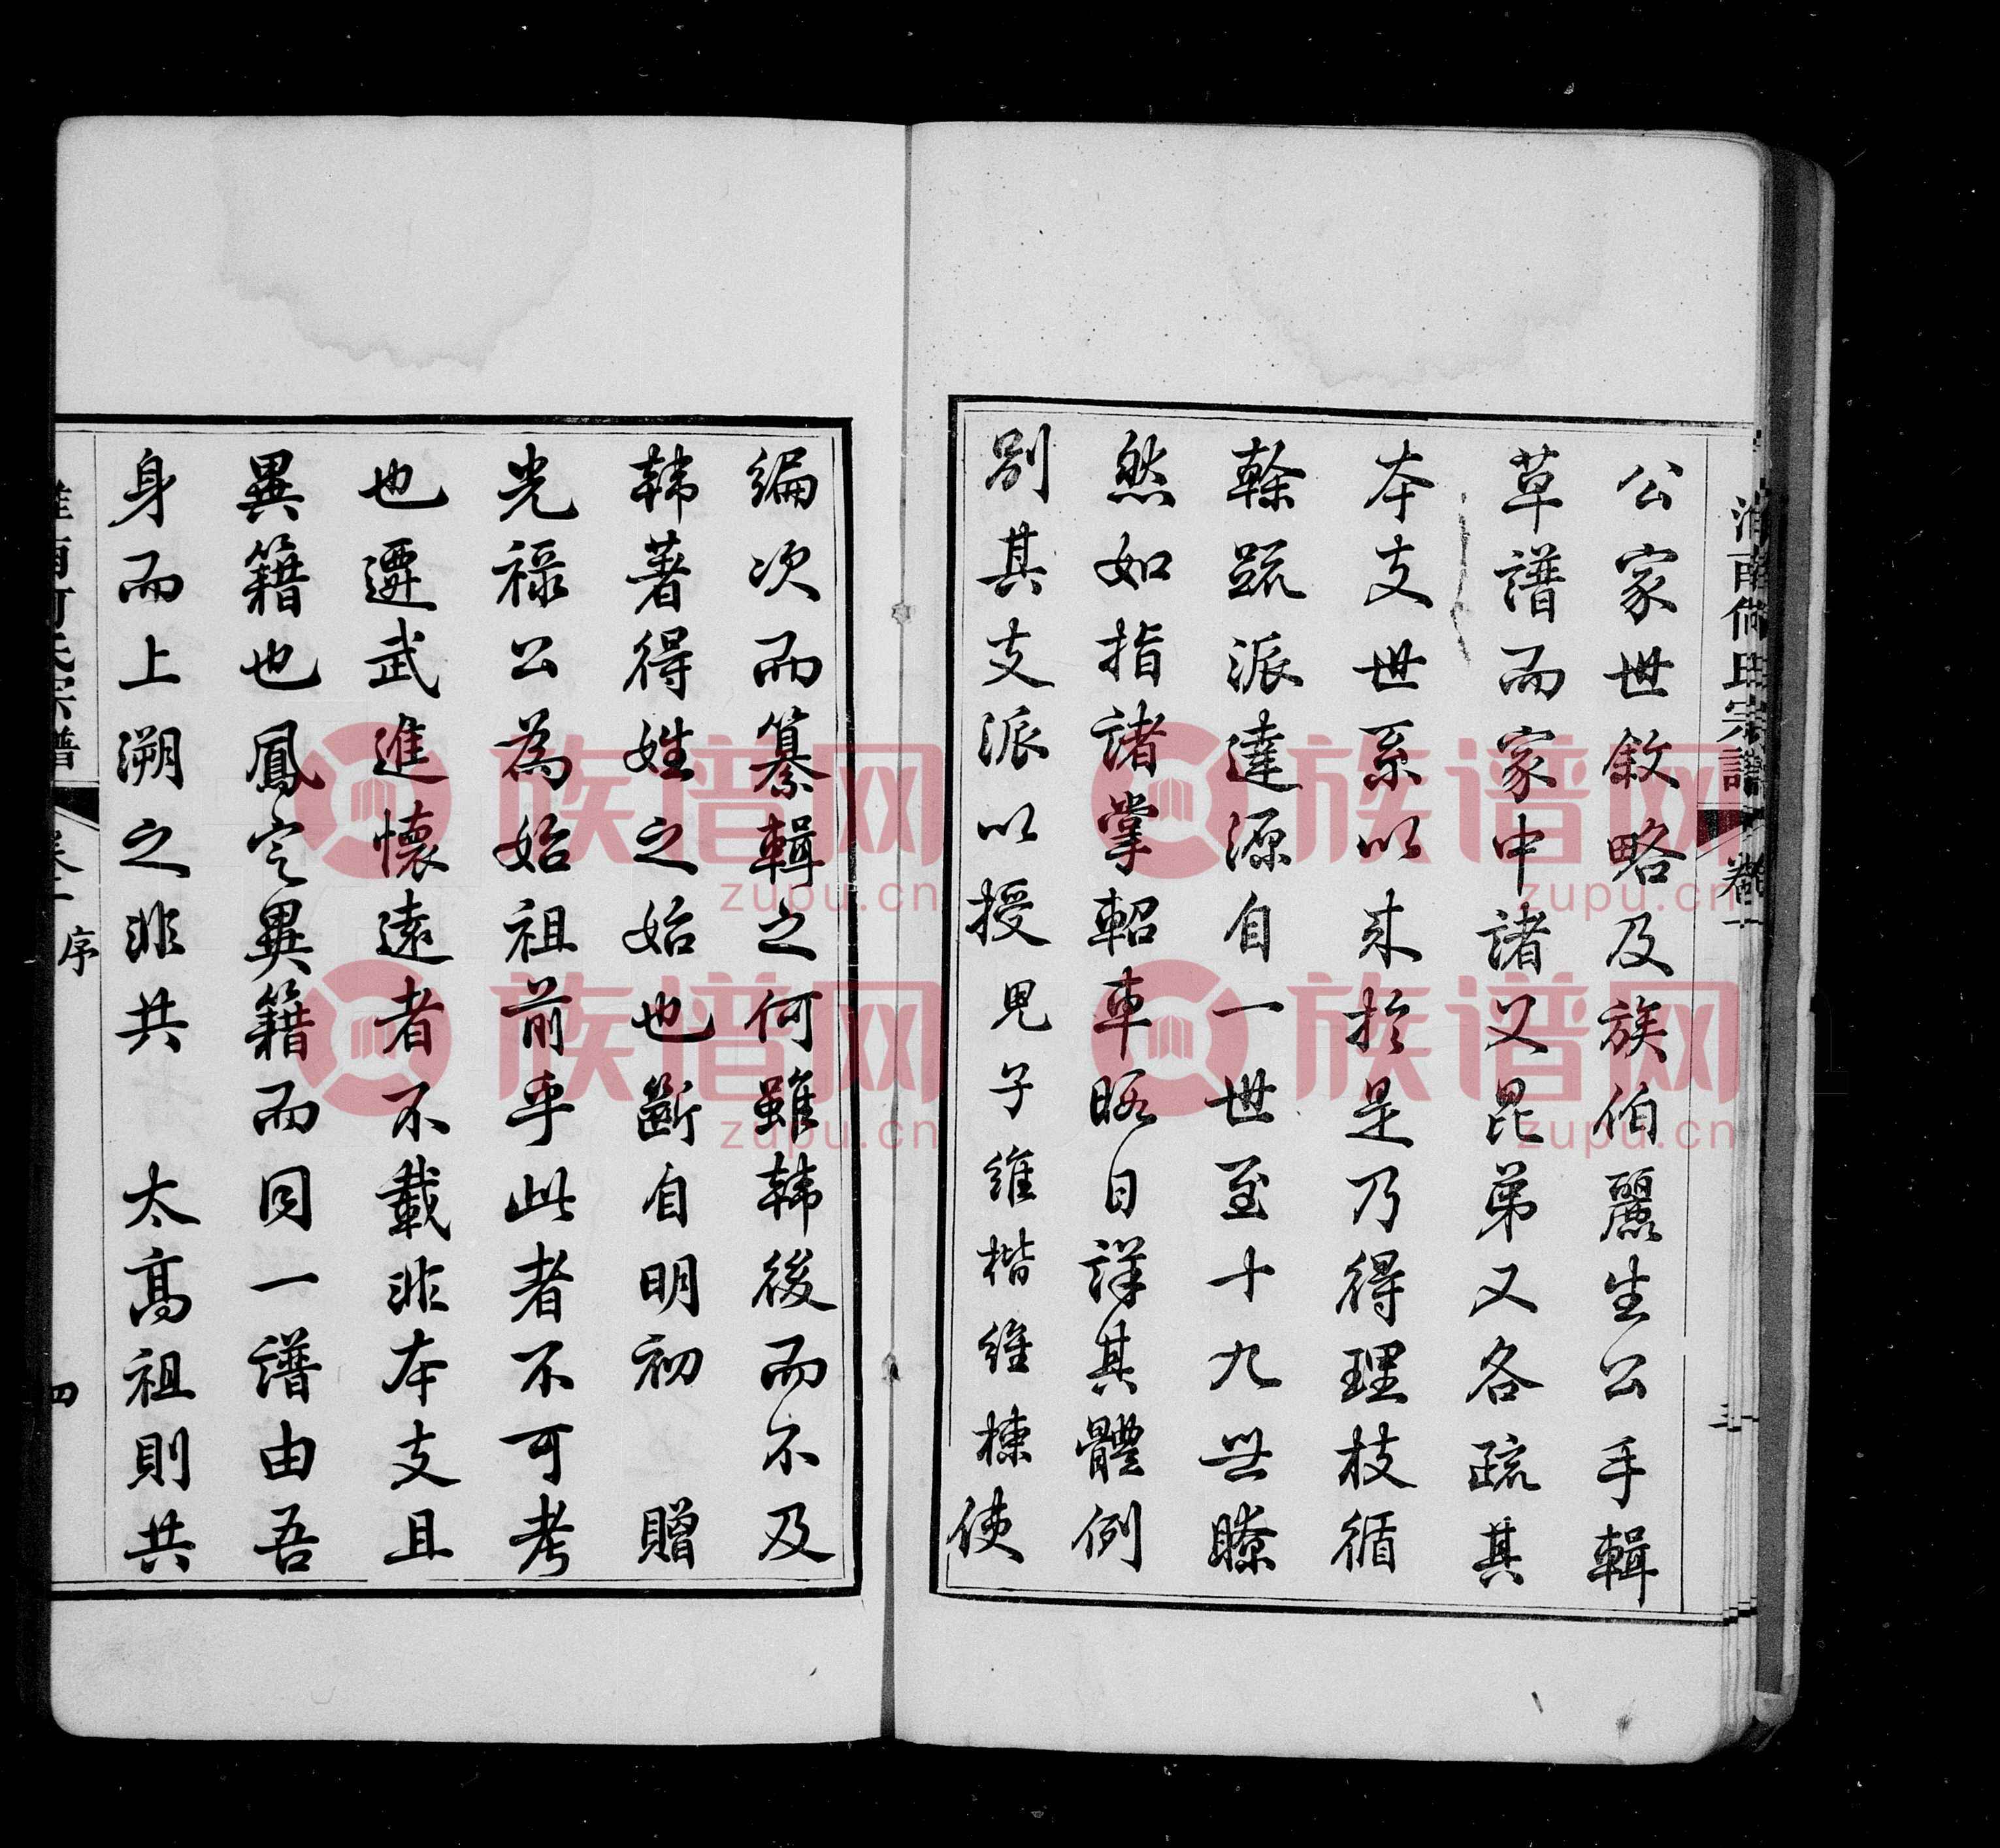 公家世敘略及族伯麗生公手輯
草譜而家中諸父昆弟又各疏其
本支世系以來於是乃得理枝循
幹疏派達源自一世至十九世瞭
然如指諸掌軺車暇日詳其體例
別其支派以授兒子維楷維棟使
編次而纂輯之何雖韓後而不及
韓著得姓之始也斷自明初 贈
光祿公為始祖前乎此者不可考
也遷武進懷遠者不載非本支且
異籍也鳳定異籍而同一譜由吾
身而上溯之非共 太高祖則共
淮南何氏宗譜 卷一 序 四
族谱网
zupu.cn
族谱网
zupu.cn
族谱网
zupu.cn
族谱网
zupu.cn